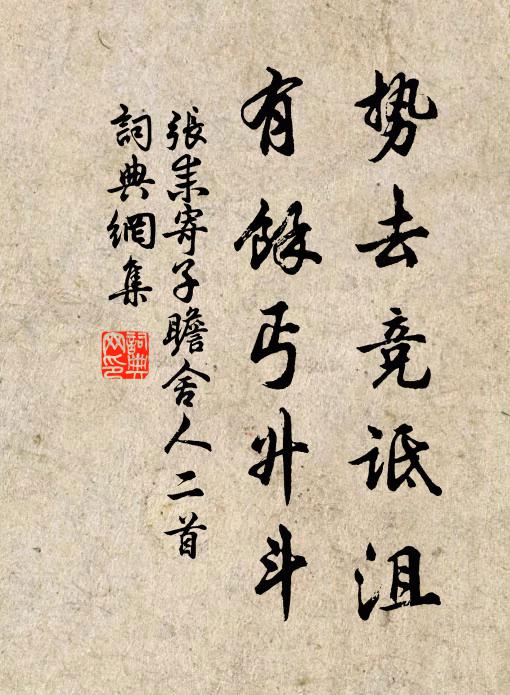 势去竞诋沮
有餘丐升斗
張耒寄子瞻舍人二首
詞典網集
詞典网印